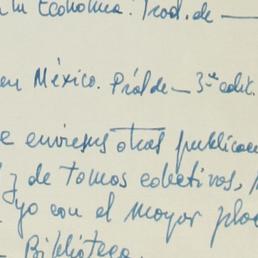 en Economía. Trad. de
en México. Pról de — 3ª edit.
e envíe sus otras publicacion
y de tomos colectivos,
yo con el mayor plac
Biblioteca.